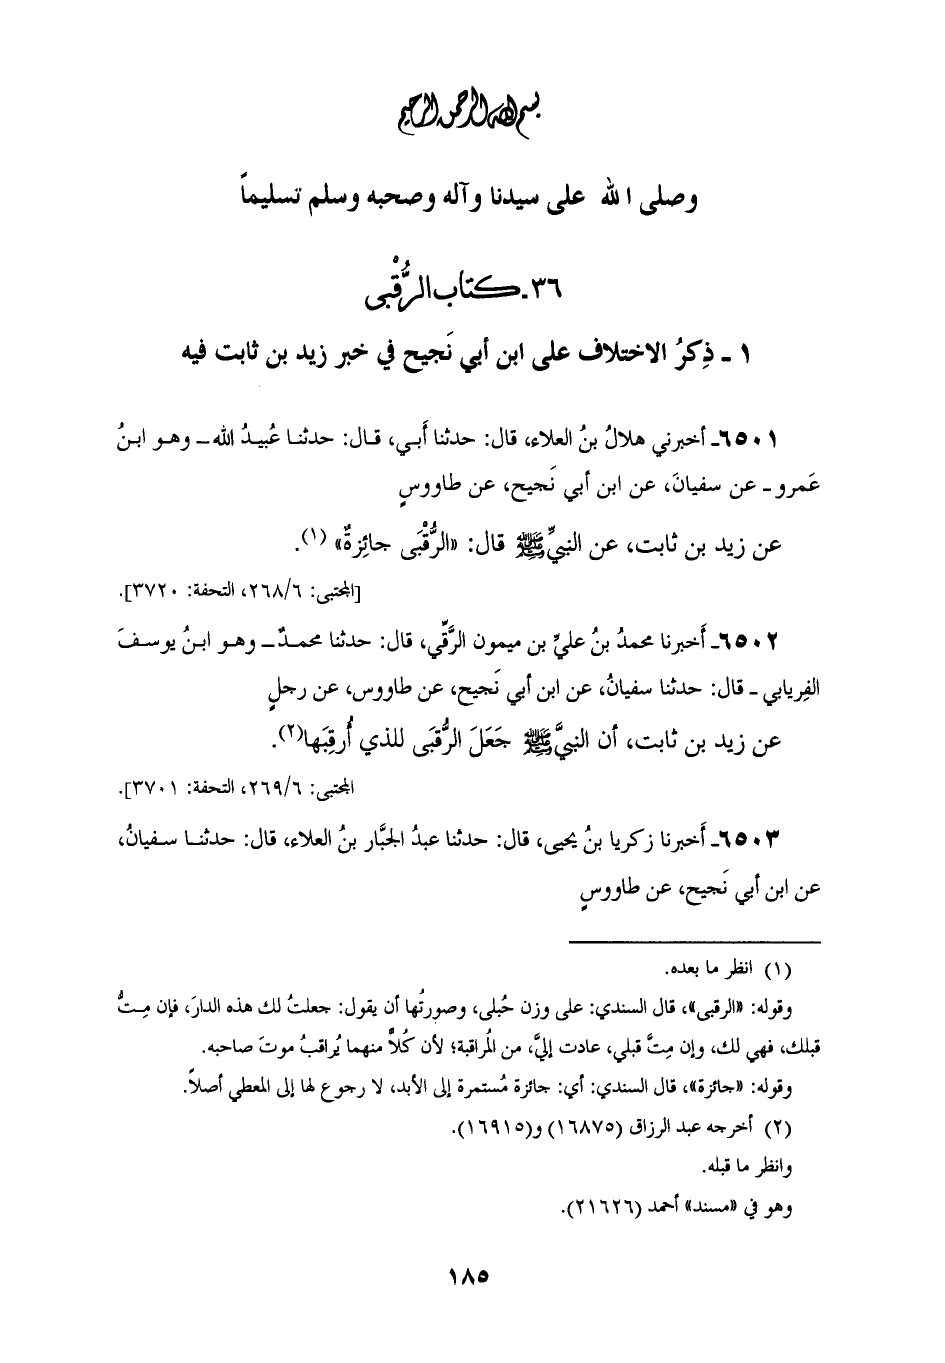 بسم الله الرحمن الرحيم
وصلى الله على سيدنا وآله وصحبه وسلم تسليماً
٣٦ـ كتاب الرُّقْبى
١ ـ ذِكرُ الاختلاف على ابن أبي نَجيح في خبر زيد بن ثابت فيه
٦٥٠١ـ أخبرني هلالُ بنُ العلاء، قال: حدثنا أَبي، قال: حدثنا عُبيدُ الله ـ وهو ابنُ
عَمرو ـ عن سفيانَ، عن ابن أبي نَجيح، عن طاووسٍ
عن زيد بن ثابت، عن النبيِّ ﷺ قال: «الرُّقْبَى جائِزةٌ» (١).
[المجتبى: ٢٦٨/٦، التحفة: ٣٧٢٠].
٦٥٠٢ـ أَخبرنا محمدُ بنُ عليِّ بن ميمون الرَّقِّي، قال: حدثنا محمدٌ ـ وهو ابنُ يوسفَ
الفِريابي ـ قال: حدثنا سفيانُ، عن ابن أبي نَجيح، عن طاووس، عن رجلٍ
عن زيد بن ثابت، أن النبيَّ ﷺ جَعَلَ الرُّقبَى للذي أُرقِبَها(٢).
المجتبى: ٢٦٩/٦، التحفة: ٣٧٠١].
٦٥٠٣ـ أَخبرنا زكريا بنُ يحيى، قال: حدثنا عبدُ الجبَّار بنُ العلاء، قال: حدثنا سفيانُ،
عن ابن أبي نَجيح، عن طاووسٍ
(١) انظر ما بعده.
وقوله: «الرقبى»، قال السندي: على وزن حُبلى، وصورتُها أن يقول: جعلتُ لك هذه الدارَ، فإن مِتُّ
قبلك، فهي لك، وإن مِتَّ قبلي، عادت إليَّ، من المُراقبة؛ لأن كُلاًّ منهما يُراقبُ موتَ صاحبه.
وقوله: «جائزة»، قال السندي: أي: جائزة مُستمرة إلى الأبد، لا رجوع لها إلى المعطي أصلاً.
(٢) أخرجه عبد الرزاق (١٦٨٧٥) و(١٦٩١٥).
وانظر ما قبله.
وهو في «مسند» أحمد (٢١٦٢٦).
١٨٥